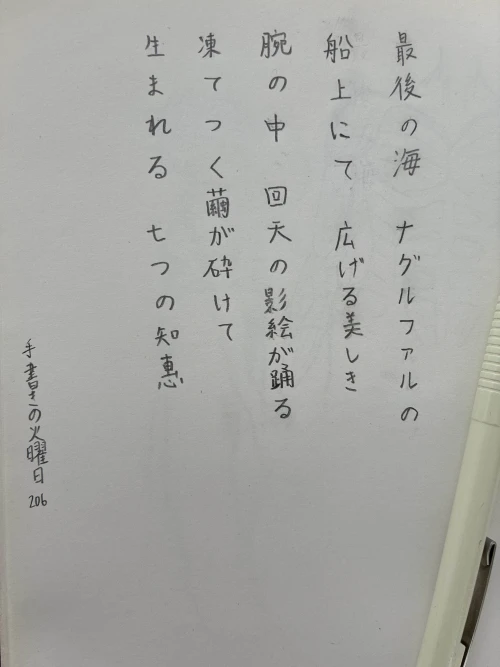 最後の海　ナグルファルの
船上にて　広げる美しき
腕の中　回天の影絵が踊る
凍てつく繭が砕けて
生まれる　七つの知恵
手書きの火曜日 206